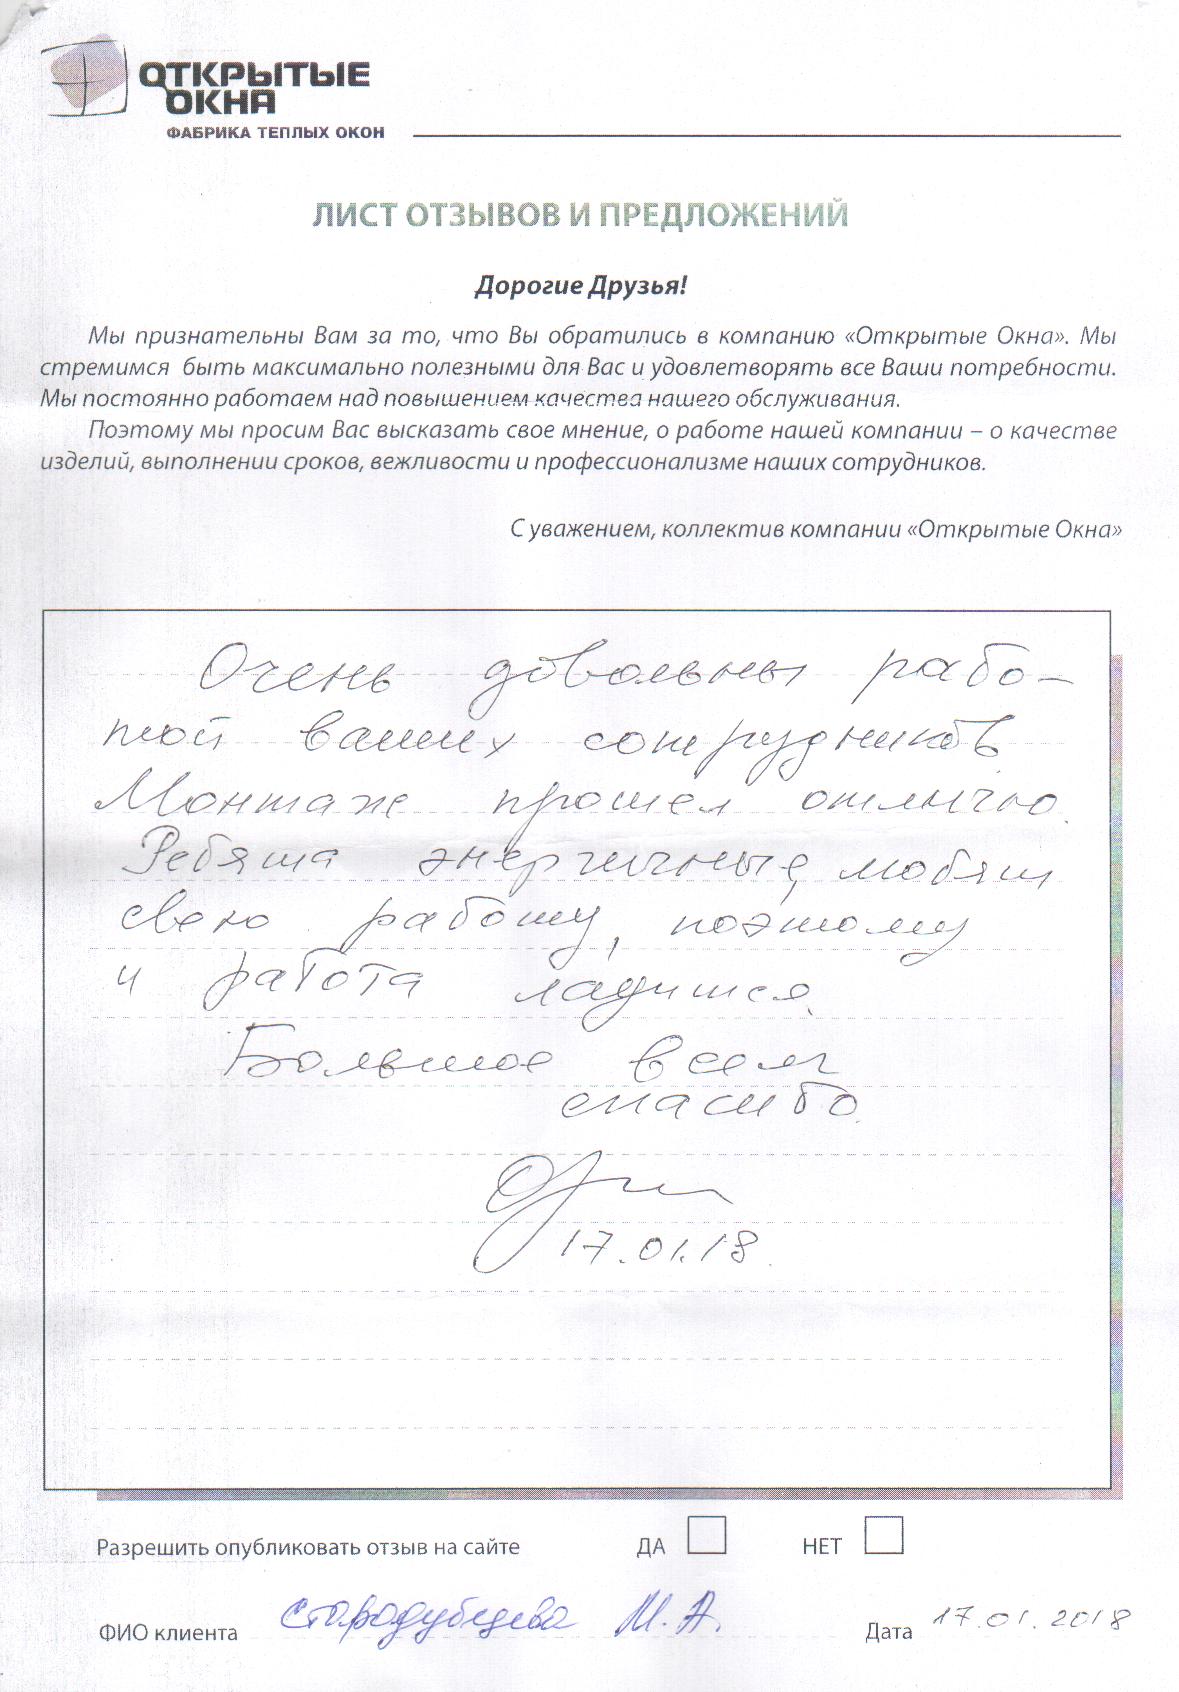 ОТКРЫТЫЕ
ОКНА
ФАБРИКА ТЕПЛЫХ ОКОН
ЛИСТ ОТЗЫВОВ И ПРЕДЛОЖЕНИЙ
Дорогие Друзья!
Мы признательны Вам за то, что Вы обратились в компанию «Открытые Окна». Мы
стремимся быть максимально полезными для Вас и удовлетворять все Ваши потребности.
Мы постоянно работаем над повышением качества нашего обслуживания.
Поэтому мы просим Вас высказать свое мнение, о работе нашей компании – о качестве
изделий, выполнении сроков, вежливости и профессионализме наших сотрудников.
С уважением, коллектив компании «Открытые Окна»
Очень довольны рабо-
той ваших сотрудников.
Монтаж прошел отлично.
Ребята энергичные, любят
свою работу, поэтому
и работа ладится.
Большое всем
спасибо.
17.01.18.
Разрешить опубликовать отзыв на сайте ДА НЕТ
ФИО клиента Стародубцева М.А. Дата 17.01.2018